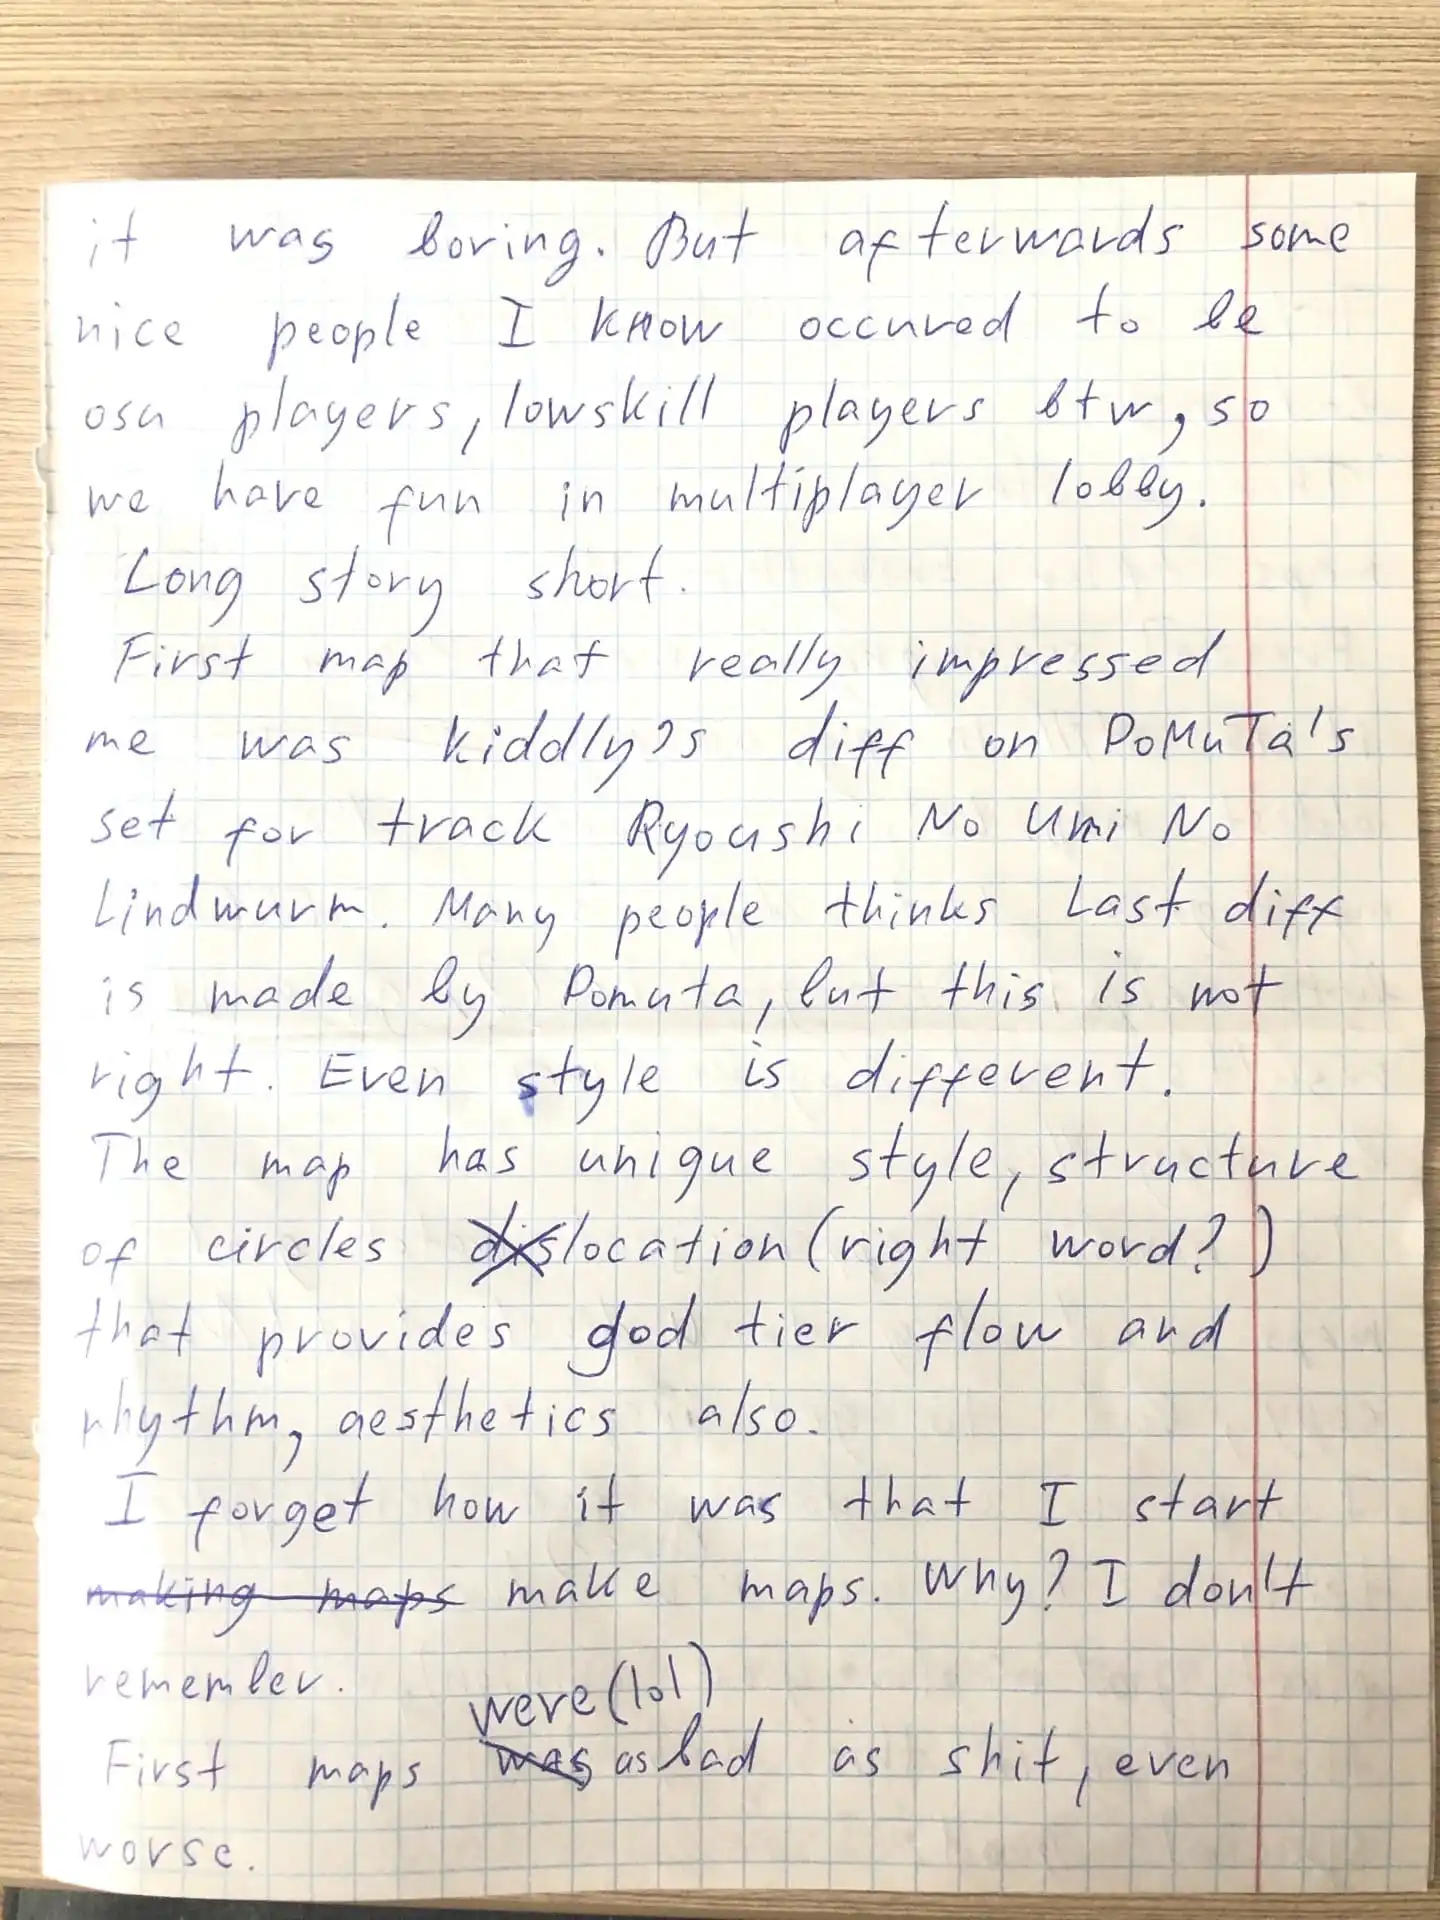 it was boring. But afterwards some
nice people I know occured to be
osu players, lowskill players btw, so
we have fun in multiplayer lobby.
Long story short.
First map that really impressed
me was kiddly's diff on PoMuTa's
set for track Ryoushi No Umi No
Lindwurm. Many people thinks Last diff
is made by Pomuta, but this is not
right. Even style is different.
The map has unique style, structure
of circles dislocation (right word?)
that provides god tier flow and
rhythm, aesthetics also.
I forget how it was that I start
making maps make maps. Why? I don't
remember.
were (lol)
First maps was as bad as shit, even
worse.